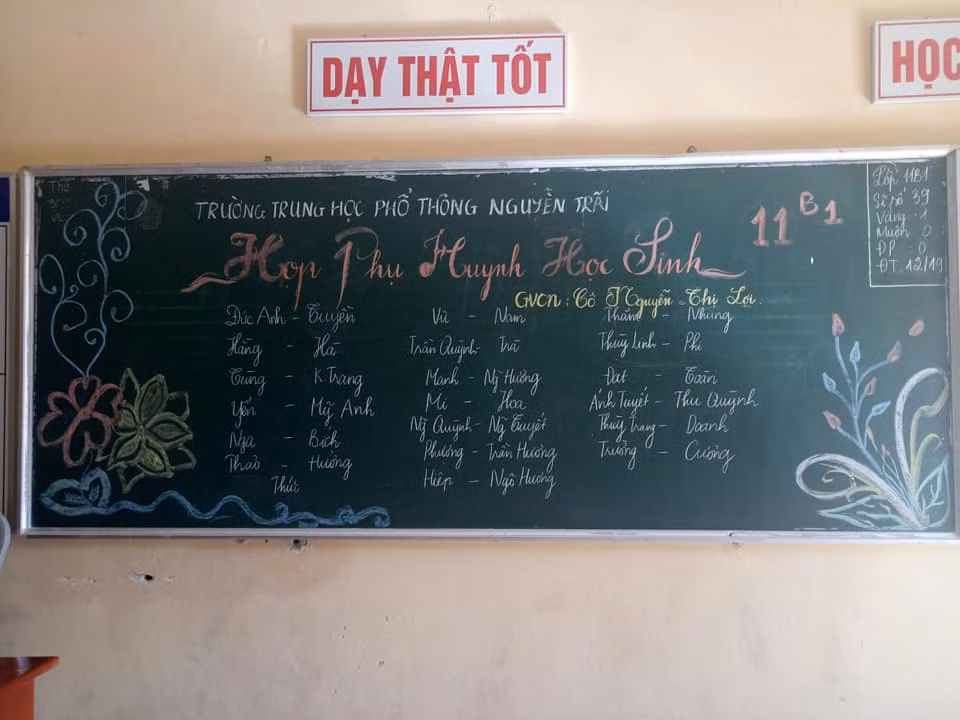 DẠY THẬT TỐT
HỌC
TRƯỜNG TRUNG HỌC PHỔ THÔNG NGUYỄN TRÃI
11 B1
Họp Phụ Huynh Học Sinh
GVCN: Cô Nguyễn Thị Lợi.
Lớp 11B1
Sĩ số 39
Vắng 1
Muộn 0
ĐP 0
ĐT 12/19
Đức Anh - Tuyền
Hằng - Hà
Tùng - K Trang
Yến - Mỹ Anh
Nga - Bích
Thảo - Hưởng
Thức
Vũ - Nam
Trần Quỳnh - Trà
Mạnh - Ng Hương
Mi - Hoa
Ng Quỳnh - Ng Tuyết
Phương - Trần Hương
Hiệp - Ngô Hương
Thắm - Nhung
Thùy Linh - Phi
Đạt - Toàn
Ánh Tuyết - Thu Quỳnh
Thùy Trang - Doanh
Trưởng - Cường